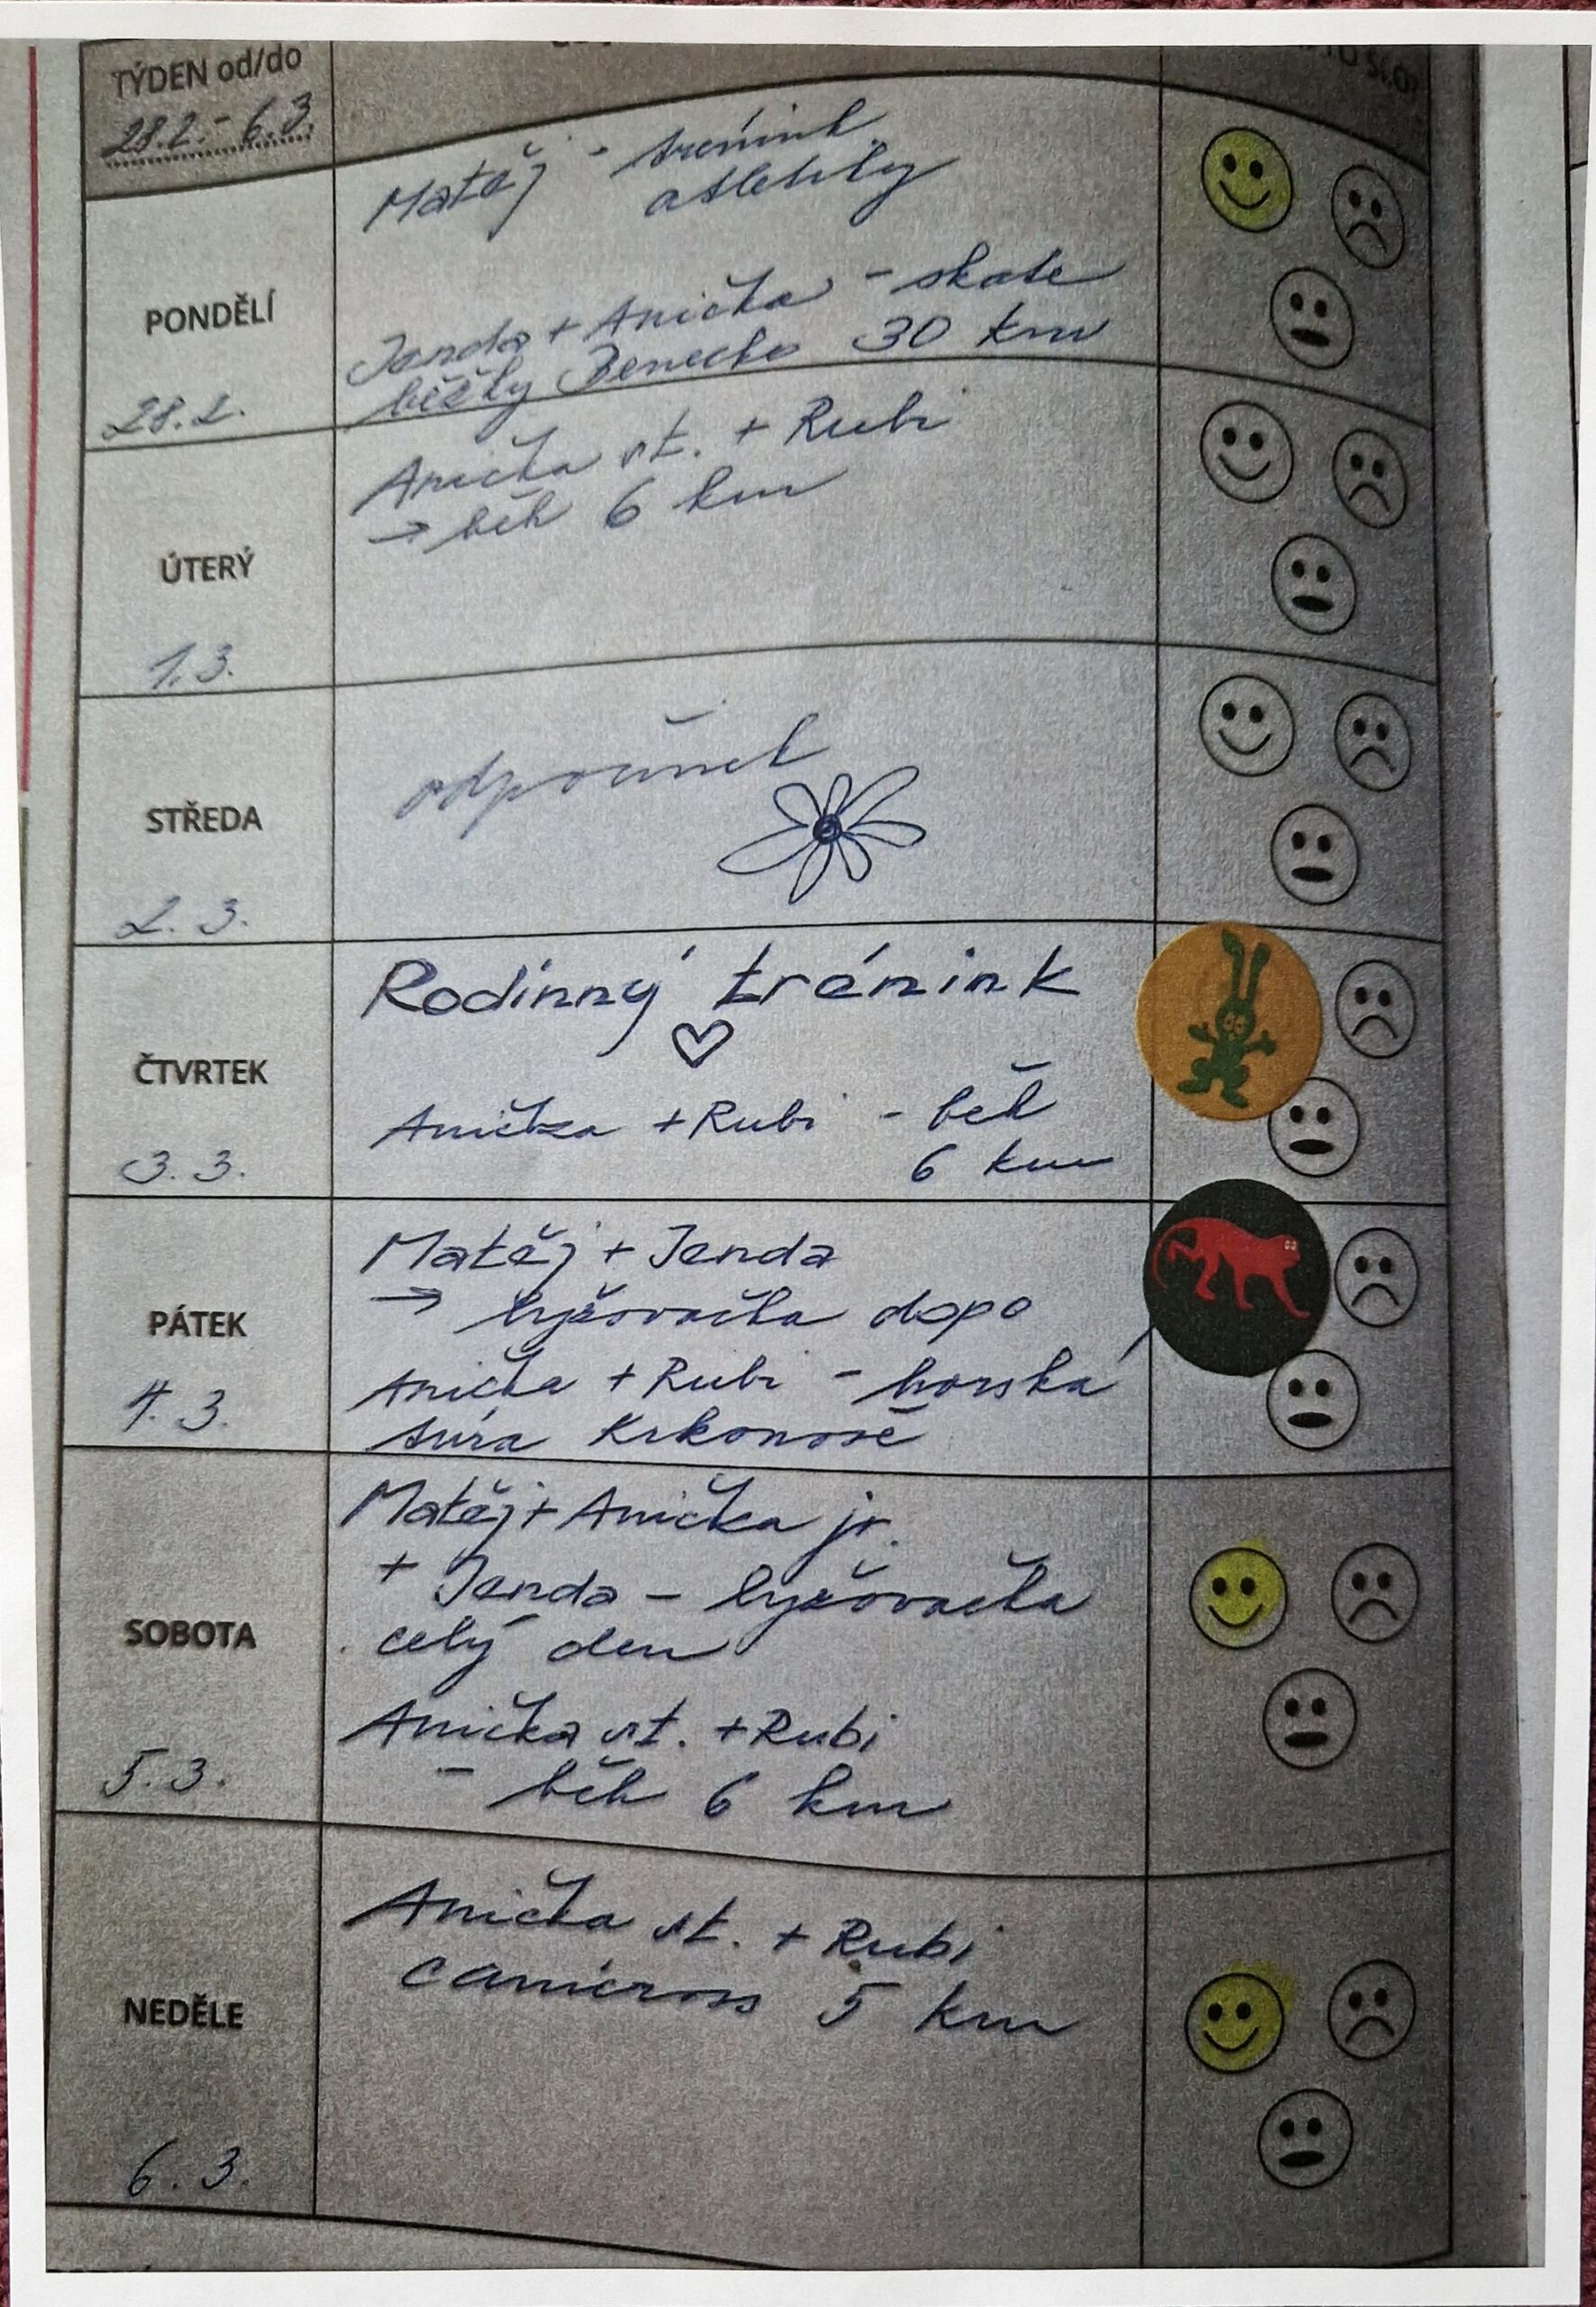 TÝDEN od/do
28.2. - 6.3.
Matěj - trénink
atletiky
Jenda + Anička - skate
běžky Benecko 30 km
PONDĚLÍ
28.2.
Anička st. + Rubi
→ běh 6 km
ÚTERÝ
1.3.
odpočinek
STŘEDA
2. 3.
Rodinný trénink
Anička + Rubi - běh
6 km
ČTVRTEK
3. 3.
Matěj + Jenda
→ lyžovačka dopo
Anička + Rubi - horská
túra Krkonoše
PÁTEK
4. 3.
Matěj + Anička jr.
+ Jenda - lyžovačka
celý den
Anička st. + Rubi
- běh 6 km
SOBOTA
5. 3.
Anička st. + Rubi
canicross 5 km
NEDĚLE
6. 3.